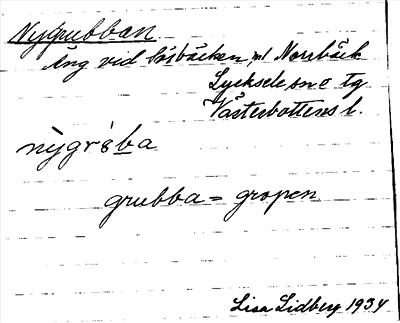 Nygrubban
Äng vid Påsbäcken, Norrbäck
Lycksele sn o tg
Västerbottens l.
nỳgrèba
grubba = gropen
Lisa Lidberg 1934